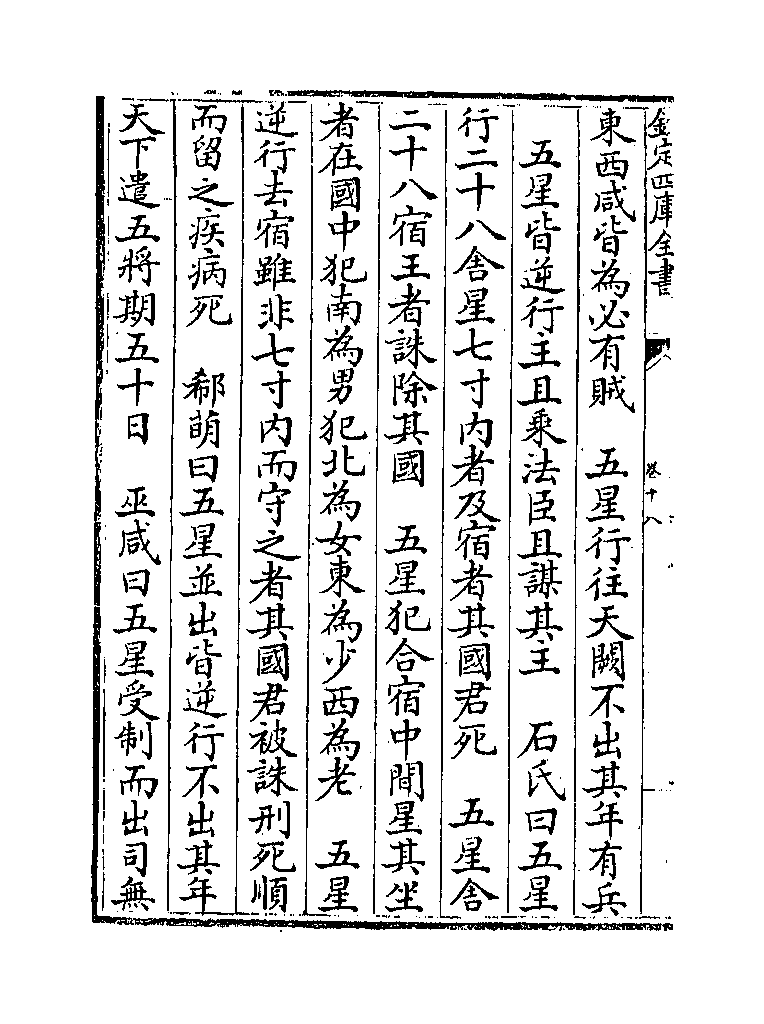 欽定四庫全書
卷十八
東西咸皆為必有賊　五星行往天闕不出其年有兵
五星皆逆行主且乘法臣且謀其主　石氏曰五星
行二十八舍星七寸内者及宿者其國君死　五星舍
二十八宿王者誅除其國　五星犯合宿中間星其坐
者在國中犯南為男犯北為女東為少西為老　五星
逆行去宿雖非七寸内而守之者其國君被誅刑死順
而留之疾病死　郗萌曰五星並出皆逆行不出其年
天下遣五將期五十日　巫咸曰五星受制而出司無